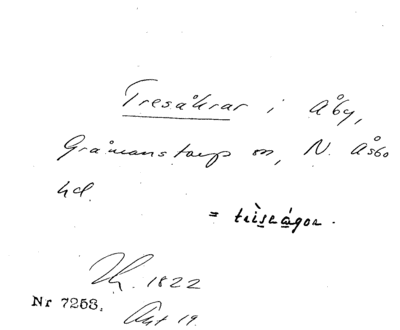 Tresåkrar i Åby,
Gråmanstorps sn, N. Åsbo
hd.
= trìsɛágor.
1822
Nr 7253. Akt 19.